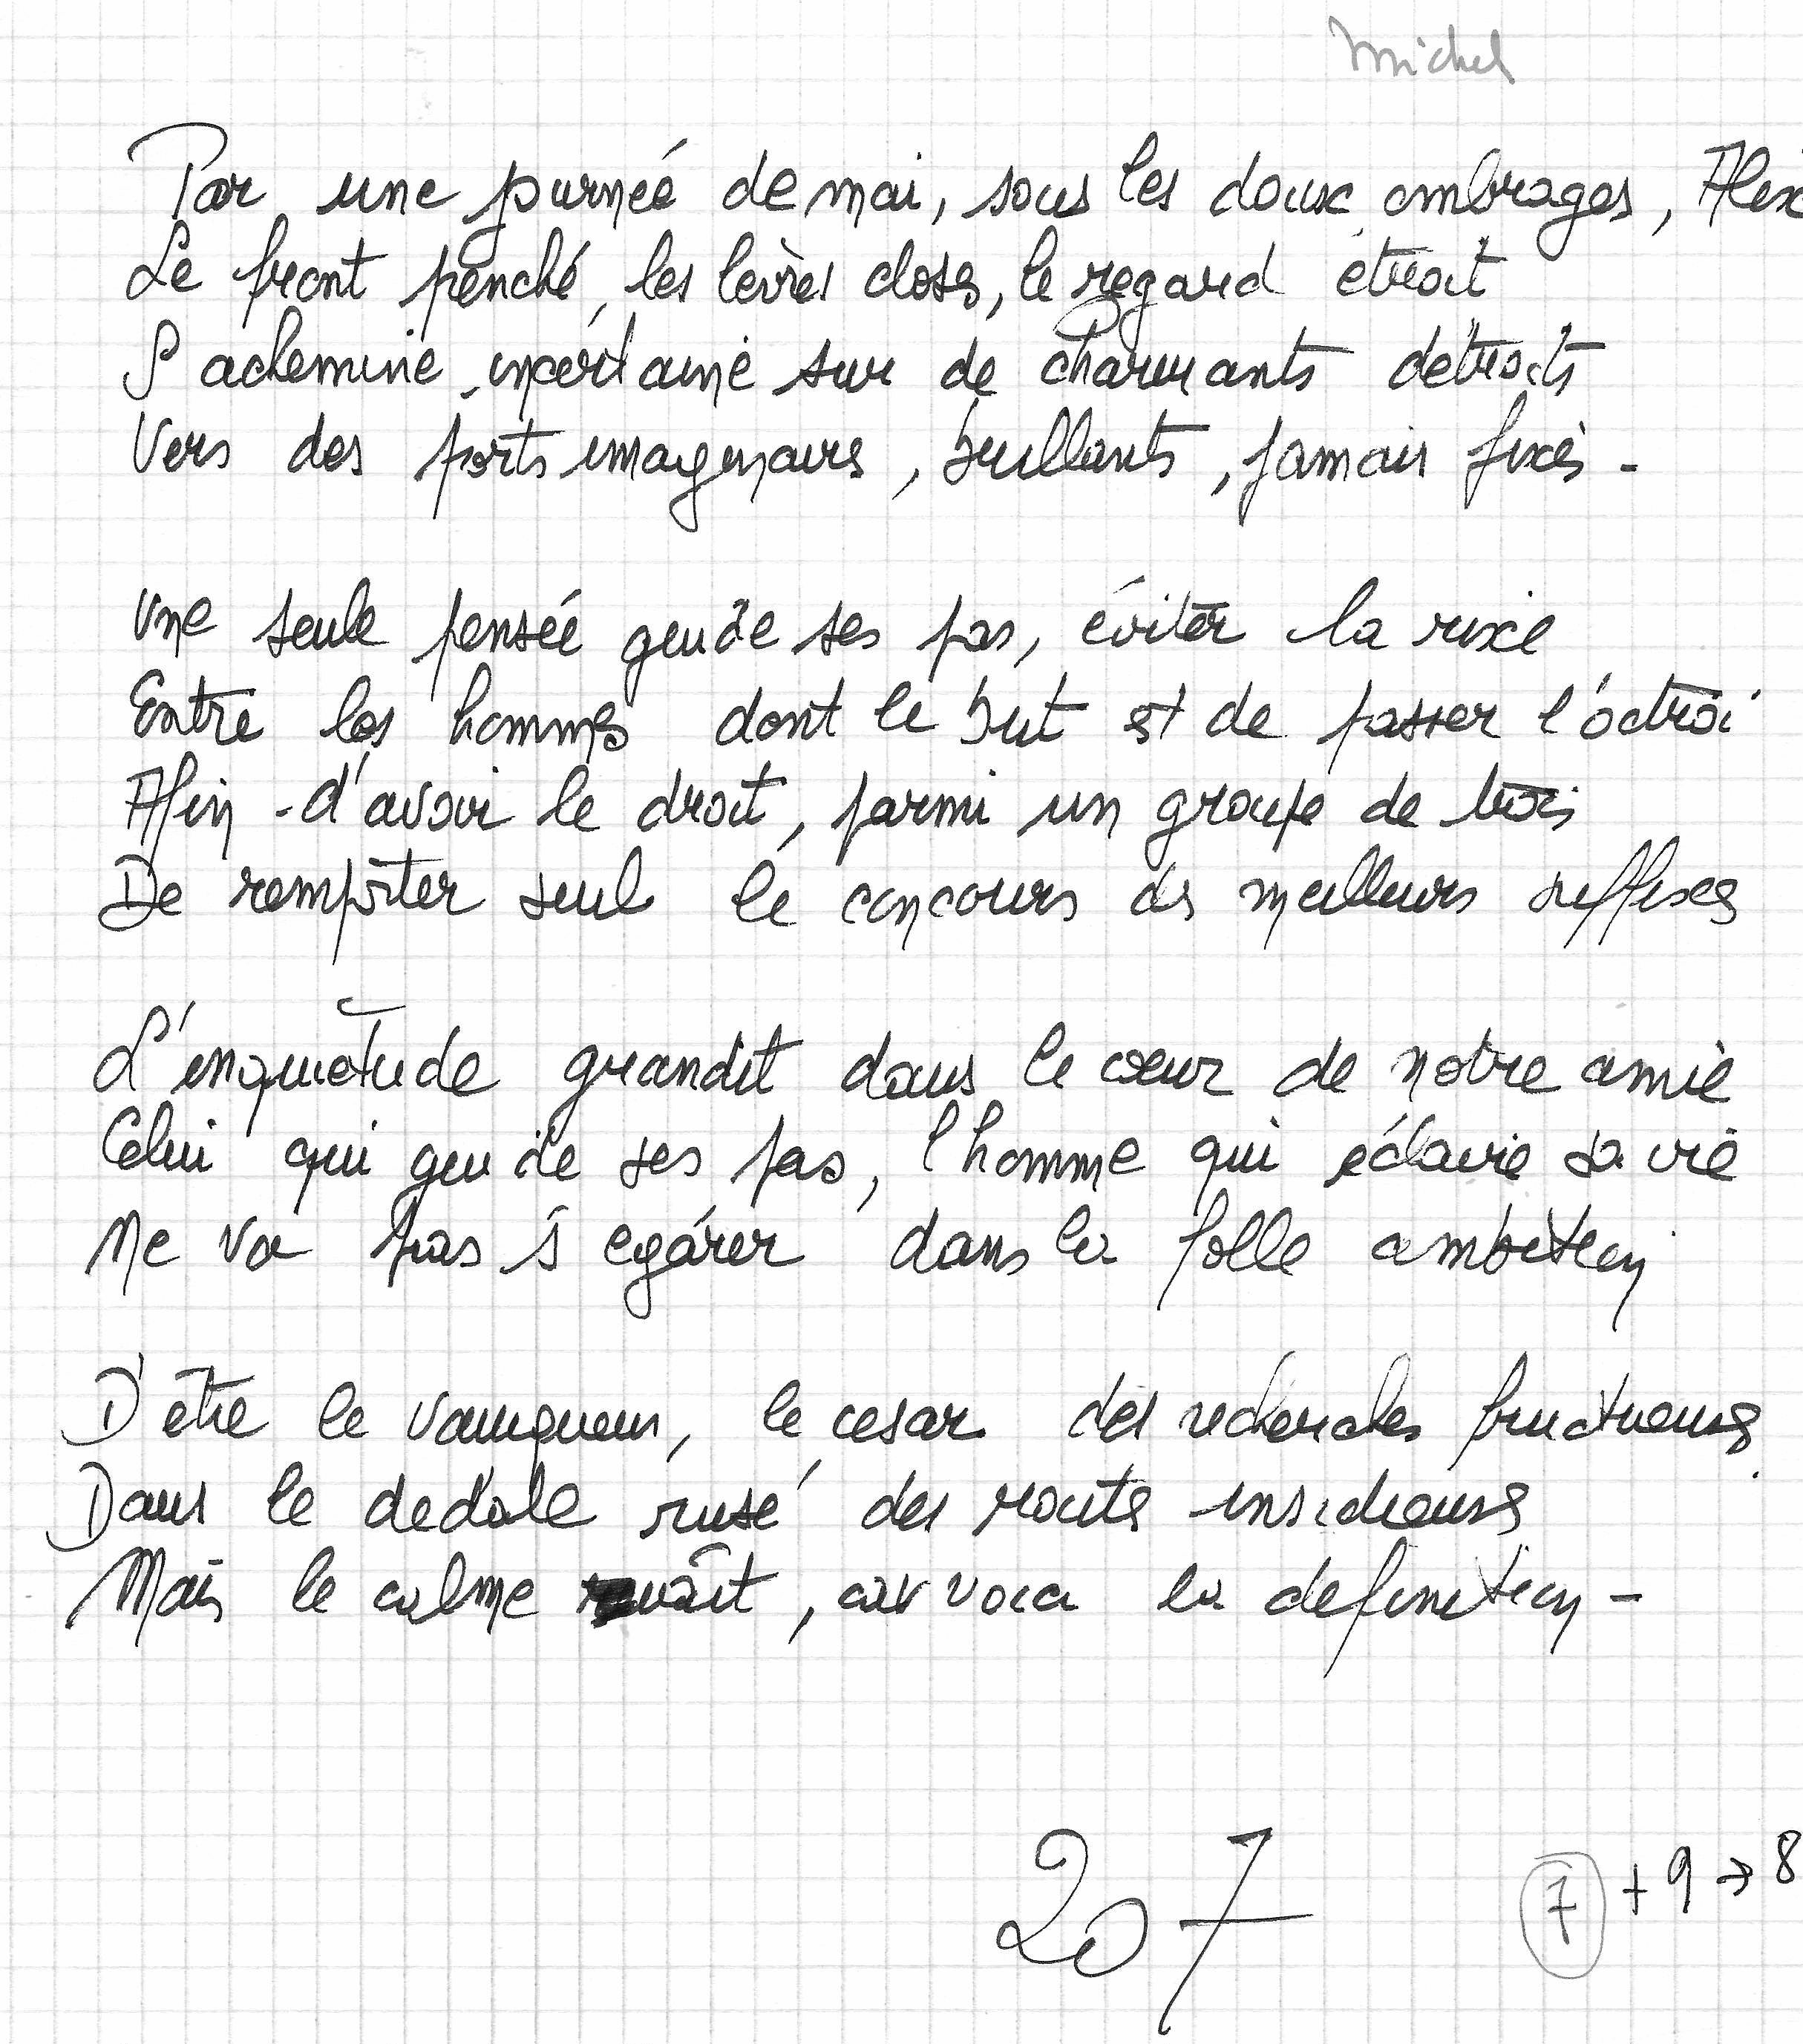 Michel
Par une journée de mai, sous les doux ombrages, Alix
Le front penché, les lèvres closes, le regard étroit
S'achemine, incertaine sur de charmants détroits
Vers des ports imaginaires, brillants, jamais fixés -
Une seule pensée guide ses pas, éviter la rixe
Entre les hommes dont le but est de passer l'octroi
Afin d'avoir le droit, parmi un groupe de trois
De remporter seul le concours des meilleurs suffixes
L'inquiétude grandit dans le coeur de notre amie
Celui qui guide ses pas, l'homme qui éclaire sa vie
Ne va pas s'égarer dans la folle ambition
D'être le vainqueur, le cesar des recherches fructueuses
Dans le dedale rusé des routes insidieuses.
Mais le calme, car voici la definition -
207
7 + 9 → 8